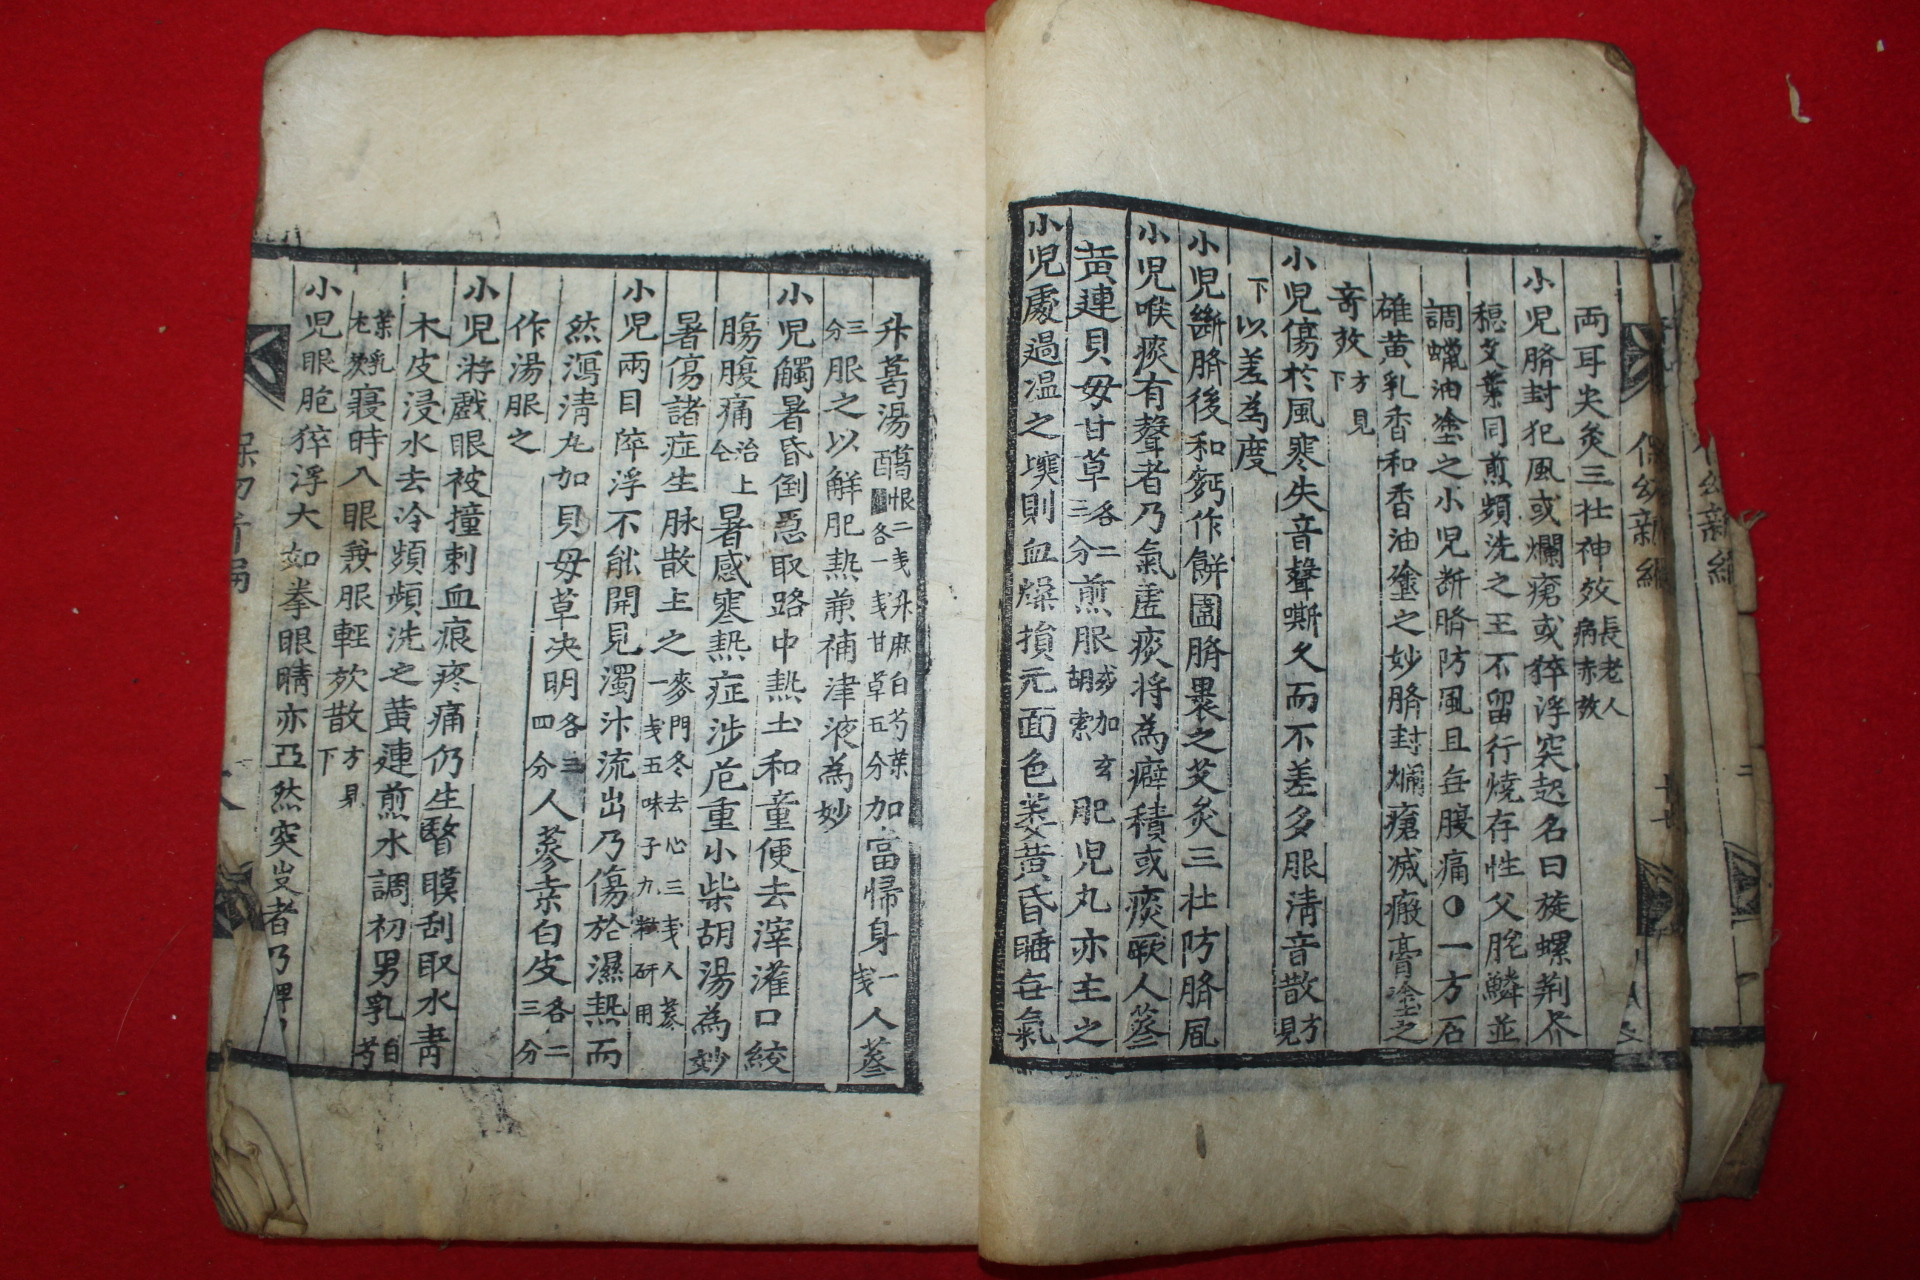 保幼新編
兩耳尖灸三壯神效長老人病亦效
小兒臍封犯風或爛瘡或猝浮突起名曰旋螺荊芥
穗艾葉同煎頻洗之王不留行燒存性父胣鱗並
調蠟油塗之小兒断臍防風且無腹痛○一方石
雄黃乳香和香油塗之妙臍封爛瘡滅瘢膏塗之
奇效方見下
小兒傷於風寒失音聲嘶久而不差多服淸音散方見
下以差為度
小兒斷臍後和麪作餠圍臍畧之艾灸三壯防臍風
小兒喉痰有聲者乃氣虛痰將為癖積或痰厥人蔘
黃連貝母甘草各二三分煎服或加玄胡索肥兒丸亦主之
小兒處過溫之堗則血燥損元面色萎黃昏睡無氣
升葛湯葛根二戔升麻白芍葉各一戔甘草五分加當歸身一戔人蔘
三分服之以解肥熱兼補津液為妙
小兒觸暑昏倒急取路中熱土和童便去滓灌口絞
腸腹痛治仝上暑感寒熱症涉危重小柴胡湯為妙
暑傷諸症生脉散主之麥門冬去心三戔人蔘一戔五味子九粒硏用
小兒兩目猝浮不能開見濁汁流出乃傷於濕熱而
然瀉淸丸加貝母草决明各三四分人蔘桑白皮各二三分
作湯服之
小兒游戲眼被撞刺血痕疼痛仍生瞖膜刮取水靑
木皮浸水去冷頻頻洗之黃連煎水調初男乳白芍
葉乳尤效寢時入眼兼服輕效散方見下
小兒眼胞猝浮大如拳眼睛亦亞然突出者乃脾
保幼新編